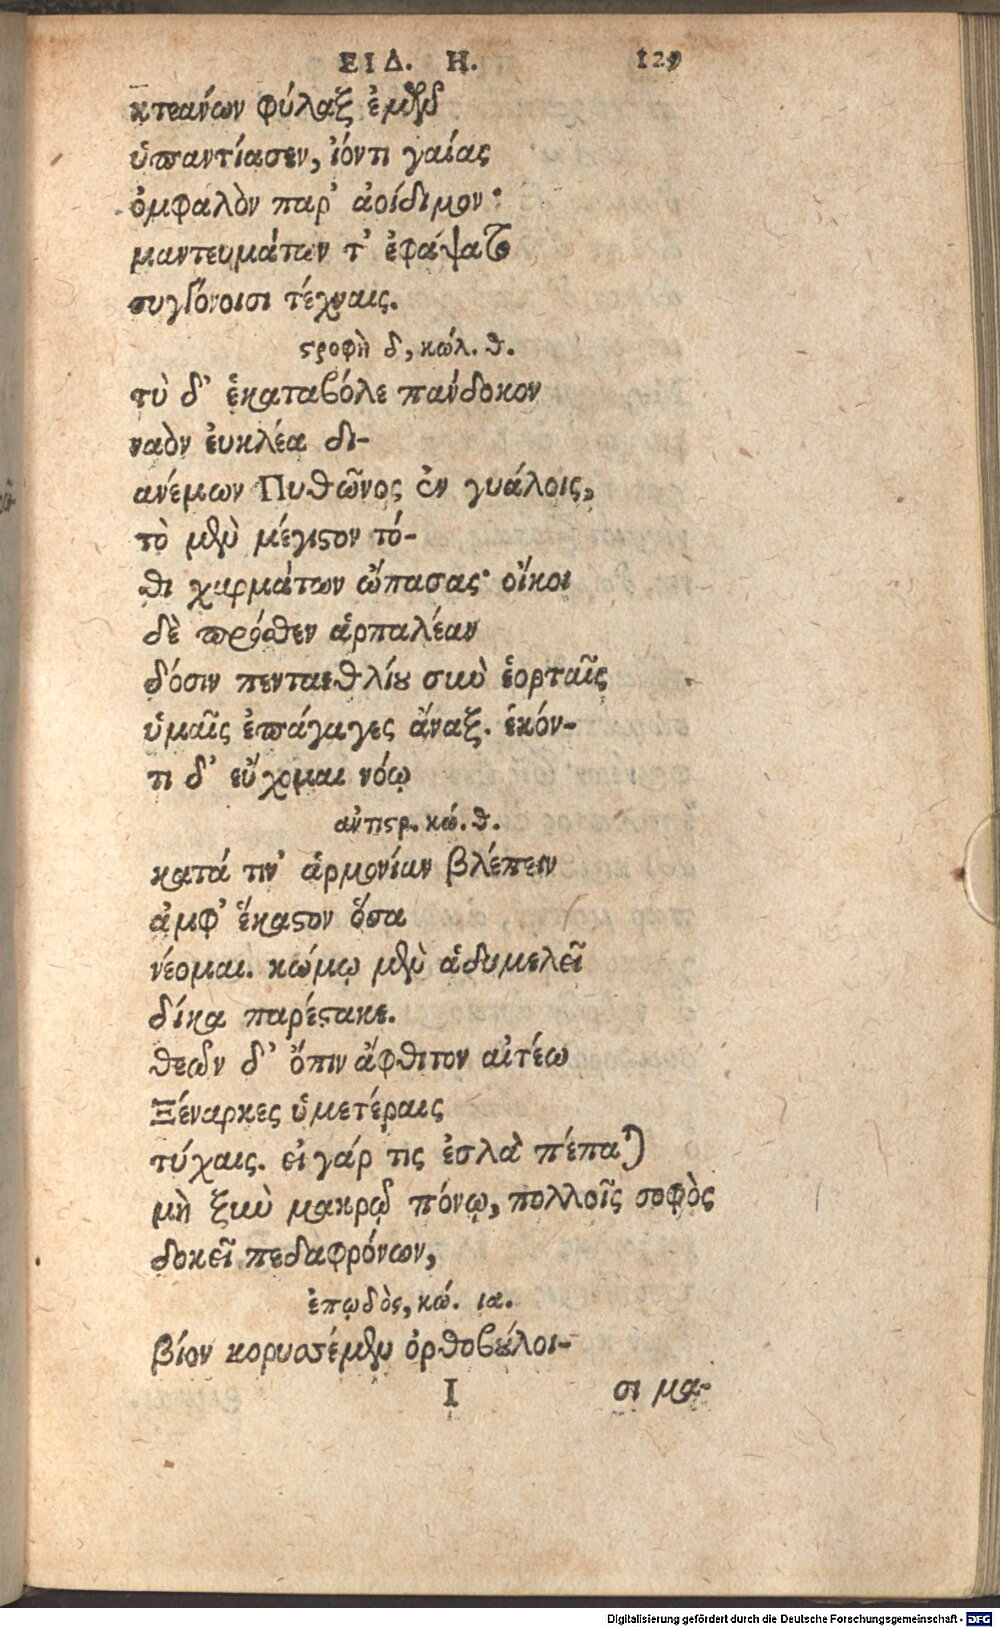 ΕΙΔ. Η. 129
κτεάνων φύλαξ ἐμῶν
ὑπαντίασεν, ἰόντι γαίας
ὀμφαλὸν παρ' ἀοίδιμον·
μαντευμάτων τ' ἐφάψατο
συγγόνοισι τέχναις.
στροφὴ δ, κώλ. θ.
τὺ δ' ἑκαταβόλε πάνδοκον
ναὸν εὐκλέα δι-
ανέμων Πυθῶνος ἐν γυάλοις,
τὸ μὲν μέγιστον τό-
θι χαρμάτων ὤπασας· οἴκοι
δὲ πρόσθεν ἁρπαλέαν
δόσιν πενταεθλίου σὺν ἑορταῖς
ὑμαῖς ἐπάγαγες ἄναξ. ἑκόν-
τι δ' εὔχομαι νόῳ
ἀντιστρ. κώ. θ.
κατά τιν' ἁρμονίαν βλέπειν
ἀμφ' ἕκαστον ὅσα
νέομαι. κώμῳ μὲν ἁδυμελεῖ
δίκα παρέστακε.
θεῶν δ' ὄπιν ἄφθιτον αἰτέω
Ξέναρκες ὑμετέραις
τύχαις. εἰ γάρ τις ἐσλὰ πέπαται
μὴ ξὺν μακρῷ πόνῳ, πολλοῖς σοφὸς
δοκεῖ πεδαφρόνων,
ἐπῳδὸς, κώ. ια.
βίον κορυσσέμεν ὀρθοβούλοι-
Ι σι μα-
Digitalisierung gefördert durch die Deutsche Forschungsgemeinschaft - DFG